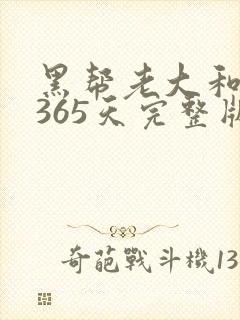 黑帮老大和
365天完整版
奇葩戰斗機13